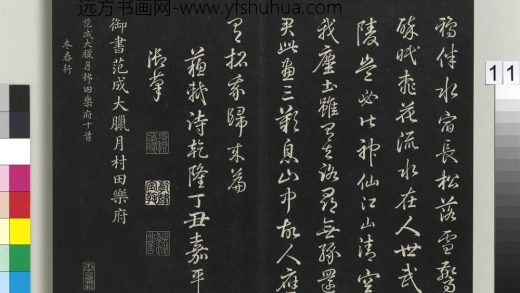 遠方书画网-www.yfshuhua.com
鴉伴水宿長松落雪驚
醉眠桃花流水在人世武
陵豈必皆神仙江山清空
我塵土雖有去路尋無緣還
君此畫三歎息山中故人應
有招我歸來篇
蘇軾詩乾隆丁丑嘉平
御筆
御書范成大臘月村田樂府
范成大臘月村田樂府十首
冬舂行
11